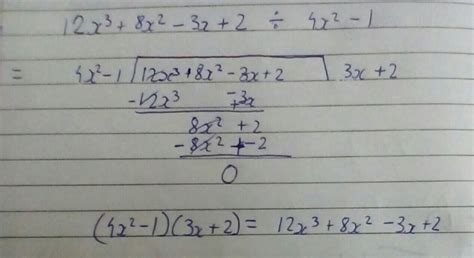 12x³ + 8x² - 3x + 2 ÷ 4x² - 1
= 4x²-1 | 12x³ + 8x² - 3x + 2 | 3x + 2
-12x³ -+3x
8x² + 2
- 8x² +- 2
0
(4x²-1)(3x+2) = 12x³ + 8x² - 3x + 2